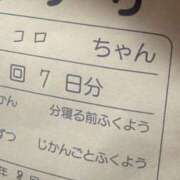 コロ ちゃん
回 7 日分
かん 分寝る前ふくよう
ずつ じかんごとふくよう
年 8 月